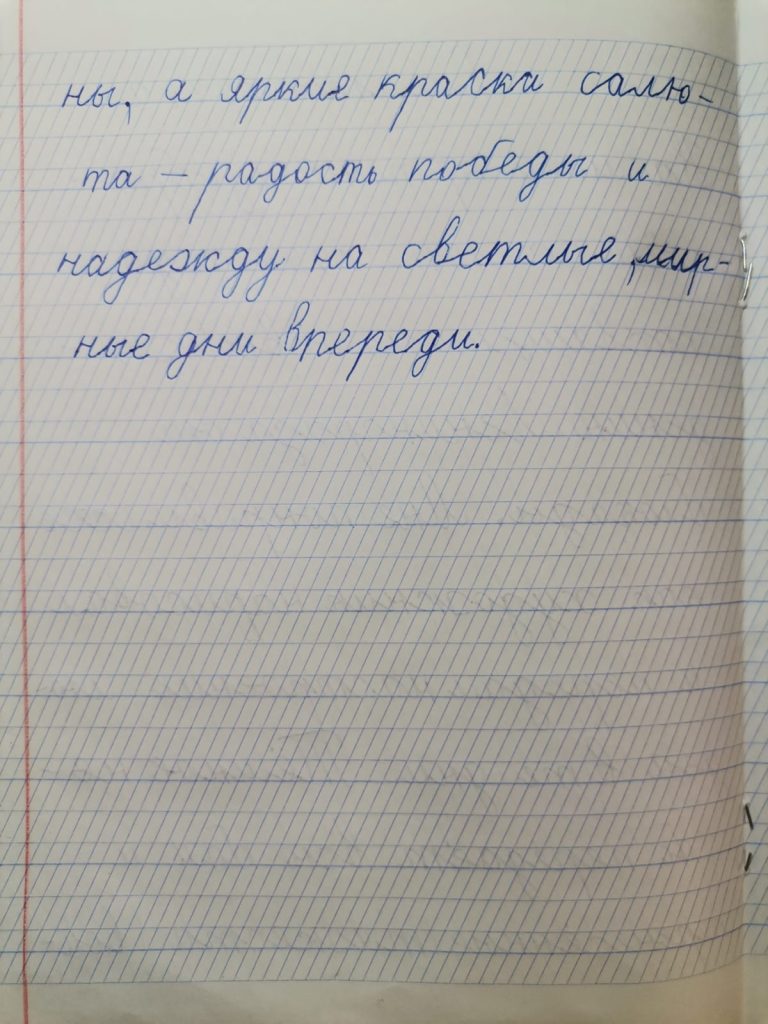 ны, а яркие краски салю-
та - радость победы и
надежду на светлые, мир-
ные дни впереди.